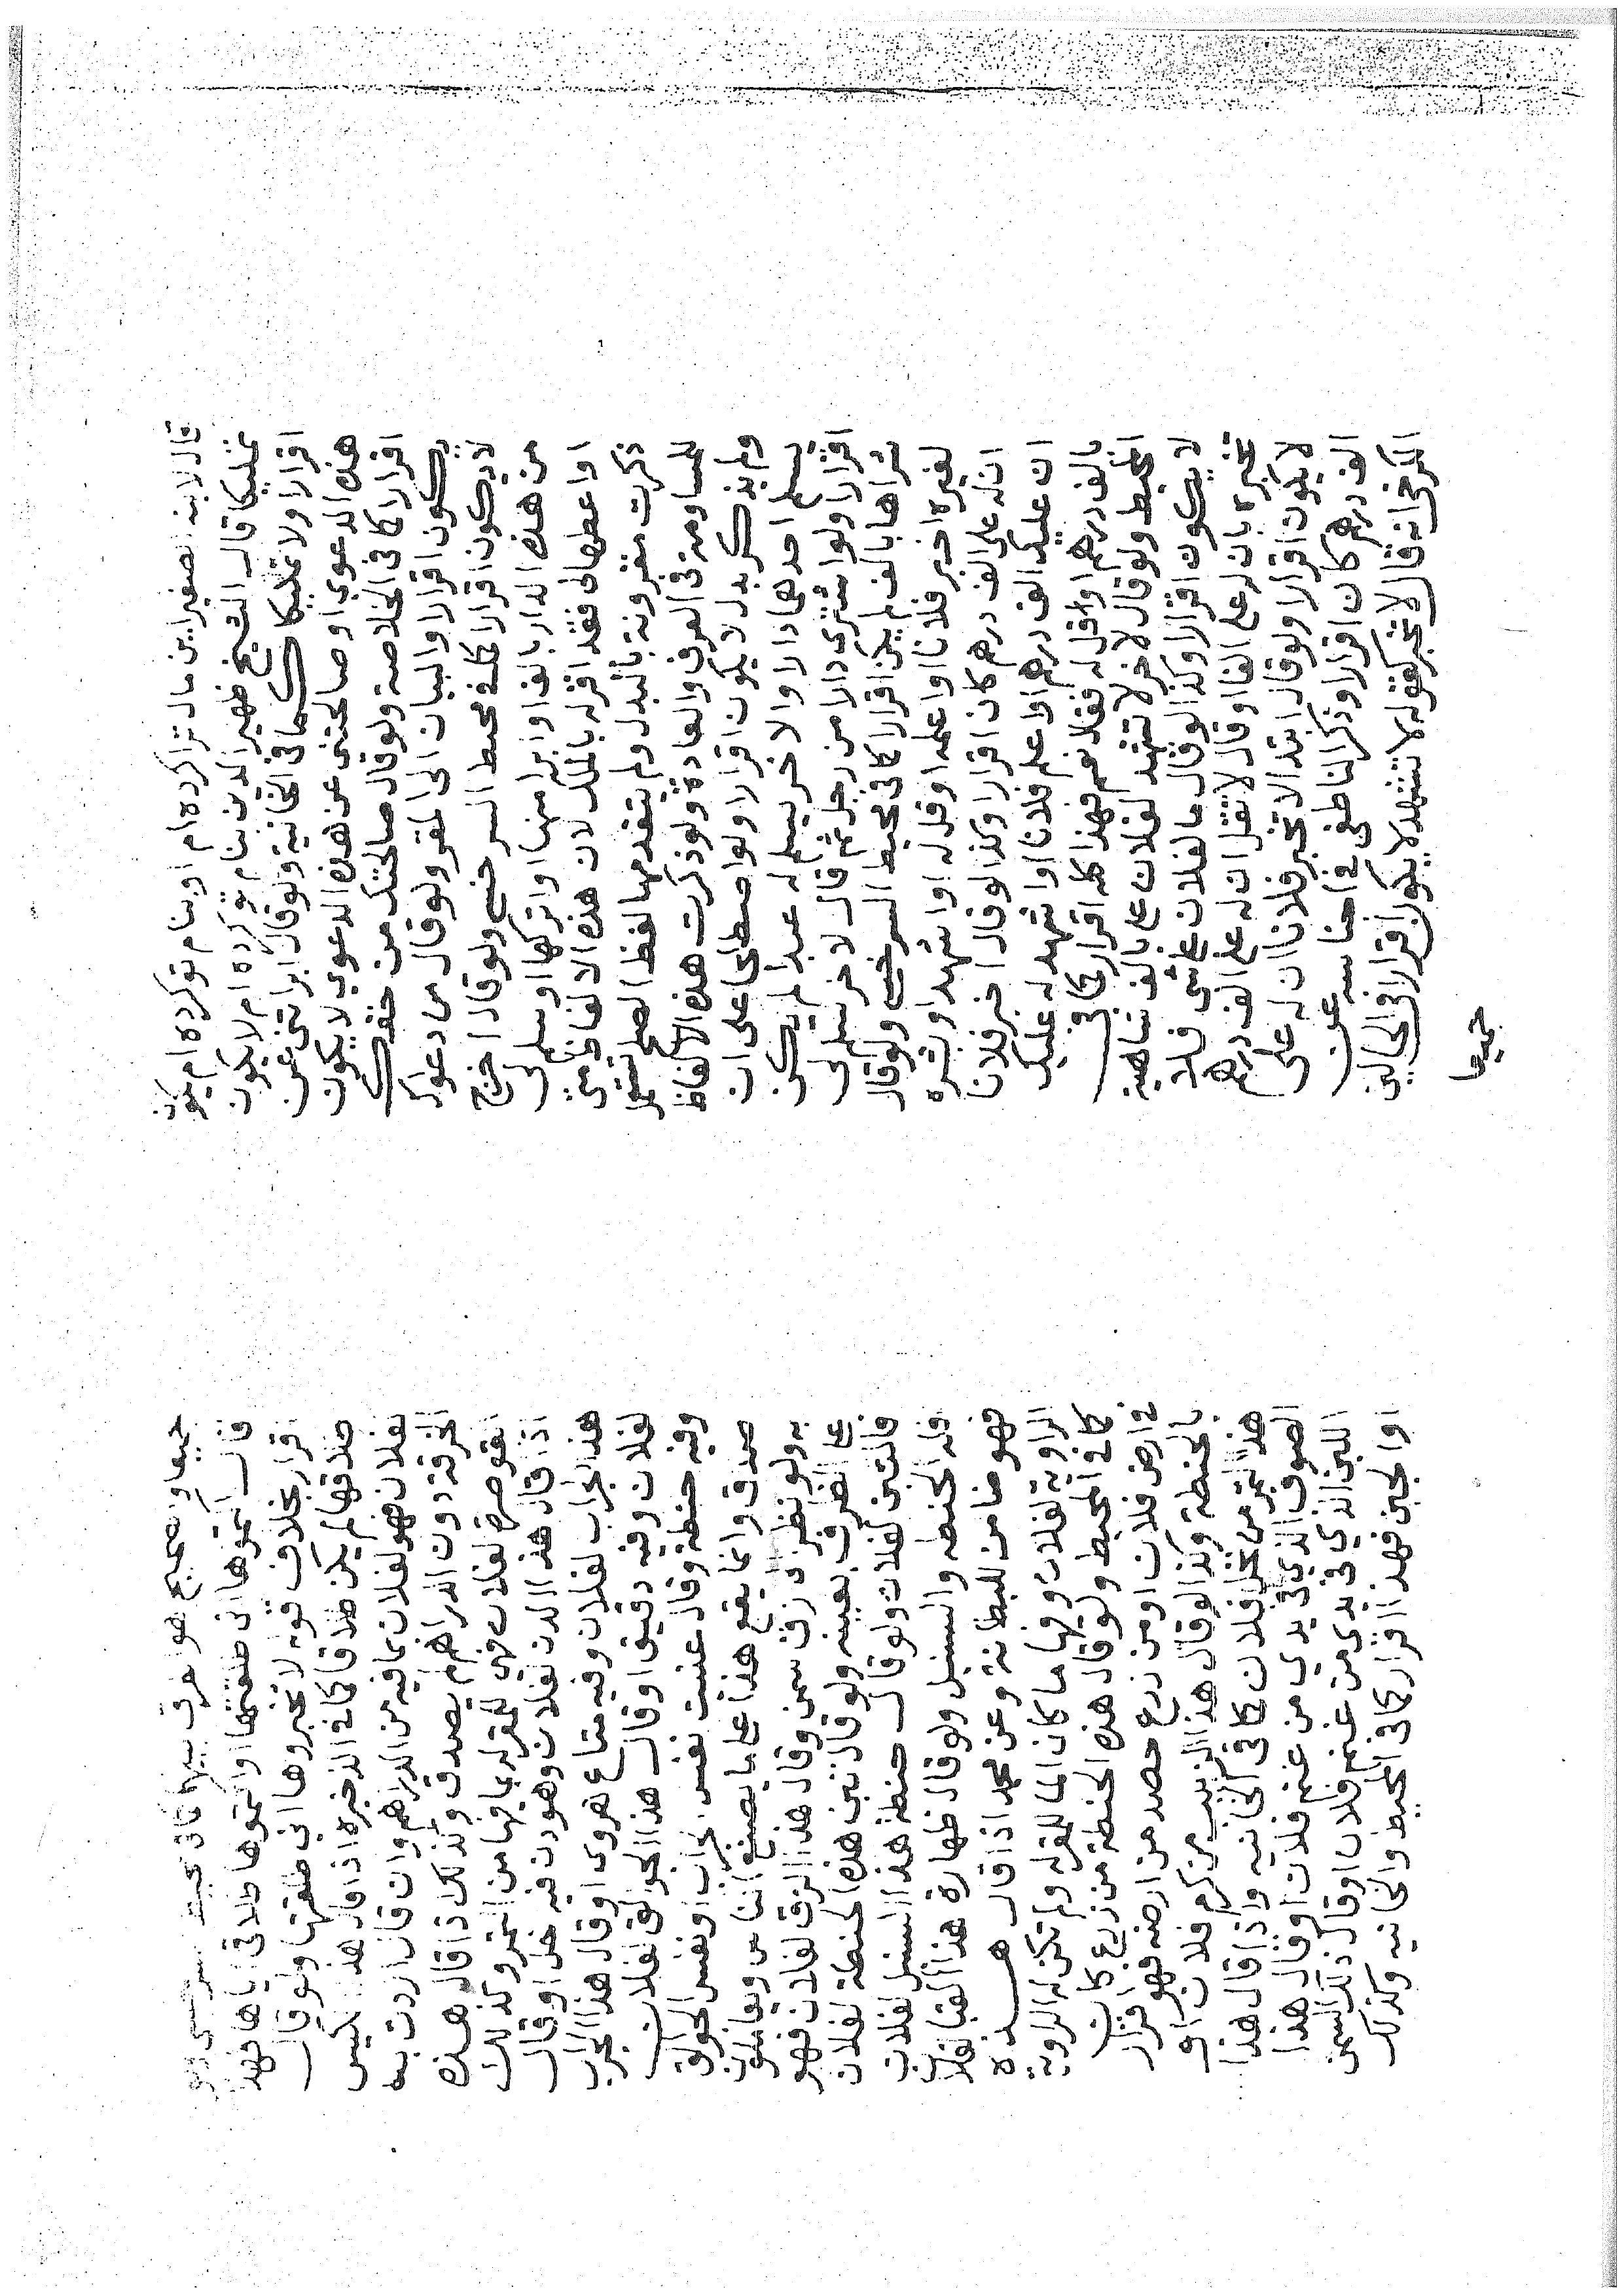 قال لابنه الصغير اين مال تراكرده ام او بنام توكرده ام يكون
تمليكا قال الشيخ ظهير الدين بنام توكرده ام لا يكون
اقرارا ولا تمليكا كما في الخانية ولو قال ابراتني عن
هذه الدعوي او صالحتني عن هذه الدعوي لا يكون
اقرارا كما في الخلاصة ولو قال صالحتك من حقك
يكون اقرارا والبيان الى المقر ولو قال من دعواك
لا يكون اقرارا كله في محيط السرخسي ولو قال اخرج
من هذه الدار بالف او ابرا منها او اتركها او سلم لى
او اعطها لى فقد اقر له بالملك لان هذه الالفاظ متى
ذكرت مقرونة بالبدل ولم يتقدمها لفظ الصلح تستعمل
للمساومة في العرف والعادة ولو ذكرت هذه الالفاظ
ولم يذكر بدل لا يكون اقرارا ولو اصطلحا على ان
يسلم احدهما دارا والاخر يسلم له عبدا لم يكن
اقرارا ولو اشترى دارا من رجل ثم قال لاخر سلم لى
شراها بالف لم يكن اقرارا كما في محيط السرخسي ولو قال
لغيره اخبر فلانا او اعلمه او قل له او اشهد او بشره
ان له على الف درهم كان اقرارا وكذا لو قال اخبر فلانا
ان عليك الف درهم او اعلم فلانا او اشهد له عليك
بالف درهم او اقل له فقال نعم فهذا كله اقرار كما في
المحيط ولو قال لاخر لا تشهد لفلان على بالف
لا يكون اقرارا وكذا لو قال ما لفلان على شى فلا
تخبره بان له على الفا او قال لا تقل ان له على الف درهم
لا يكون اقرارا ولو قال ابتدا لا تخبر فلانا ان له على
الف درهم كان اقرارا وذكر الناطفى في اجناسه عن
الكرخى انه قال لا تخبر كقوله لا تشهد لا يكون اقرارا في الحالين
جميعا
جميعا والصحيح هو الفرق بينهما كما في محيط السرخسي ولو
قال اكتموها انى طلقتها او اكتموها طلاقى اياها فهذا
اقرار بخلاف قوله لا تخبروها انى طلقتها ولو قال
طلاقها لم يكن طلاقا كما في الذخيرة اذا قال هذا الكيس
لفلان فهو لفلان بما فيه من الدراهم وان قال اردت به
الخرقة دون الدراهم لم يصدق وكذلك اذا قال هذه
القوصرة لفلان فهى للمقر له بما فيها من التمر وكذلك
اذا قال هذا الدن لفلان وهو دن فيه خل او قال
هذا الجراب لفلان وفيه متاع هروى او قال هذا الجراب
لفلان وفيه دقيق او قال هذا الجوالق لفلان
وفيه حنطة وقال عنيت نفس الجراب او نفس الجوالق
صدق وانما يقع هذا على ما يصنع الناس ويعاملون
به ولو نظر الى زق سمن وقال هذا الزق لفلان فهو
على الظرف بعينه ولو قال تبن هذه الحنطة لفلان
فالتبن لفلان ولو قال حنطة هذا السنبل لفلان
فله الحنطة والسنبل ولو قال ظهارة هذا القبا لفلان
فهو ضامن للبطانة وعن محمد اذا قال هذه
الراوية لفلان وفيها ما كان الما للمقر له ولم تكن له الراوية
كما في المحيط ولو قال هذه الحنطة من زرع كان
في ارض فلان او من زرع حصد من ارضه فهو اقرار
بالحنطة وكذا لو قال هذا الزبيب من كرم فلان او
هذا التمر من نخل فلان كما في الخانيه واذا قال هذا
الصوف الذي في يدي من غنم فلان او قال هذا
اللبن الذي في يدى من غنم فلان او قال ذلك السمن
او الجبن فهذا اقرار كما في المحيط والخانيه وكذلك